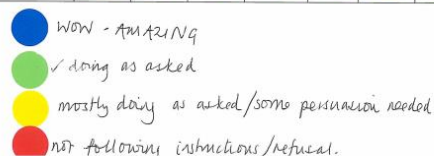 WOW - AMAZING
✓ doing as asked
mostly doing as asked/some persuasion needed
not following instructions/refusal.